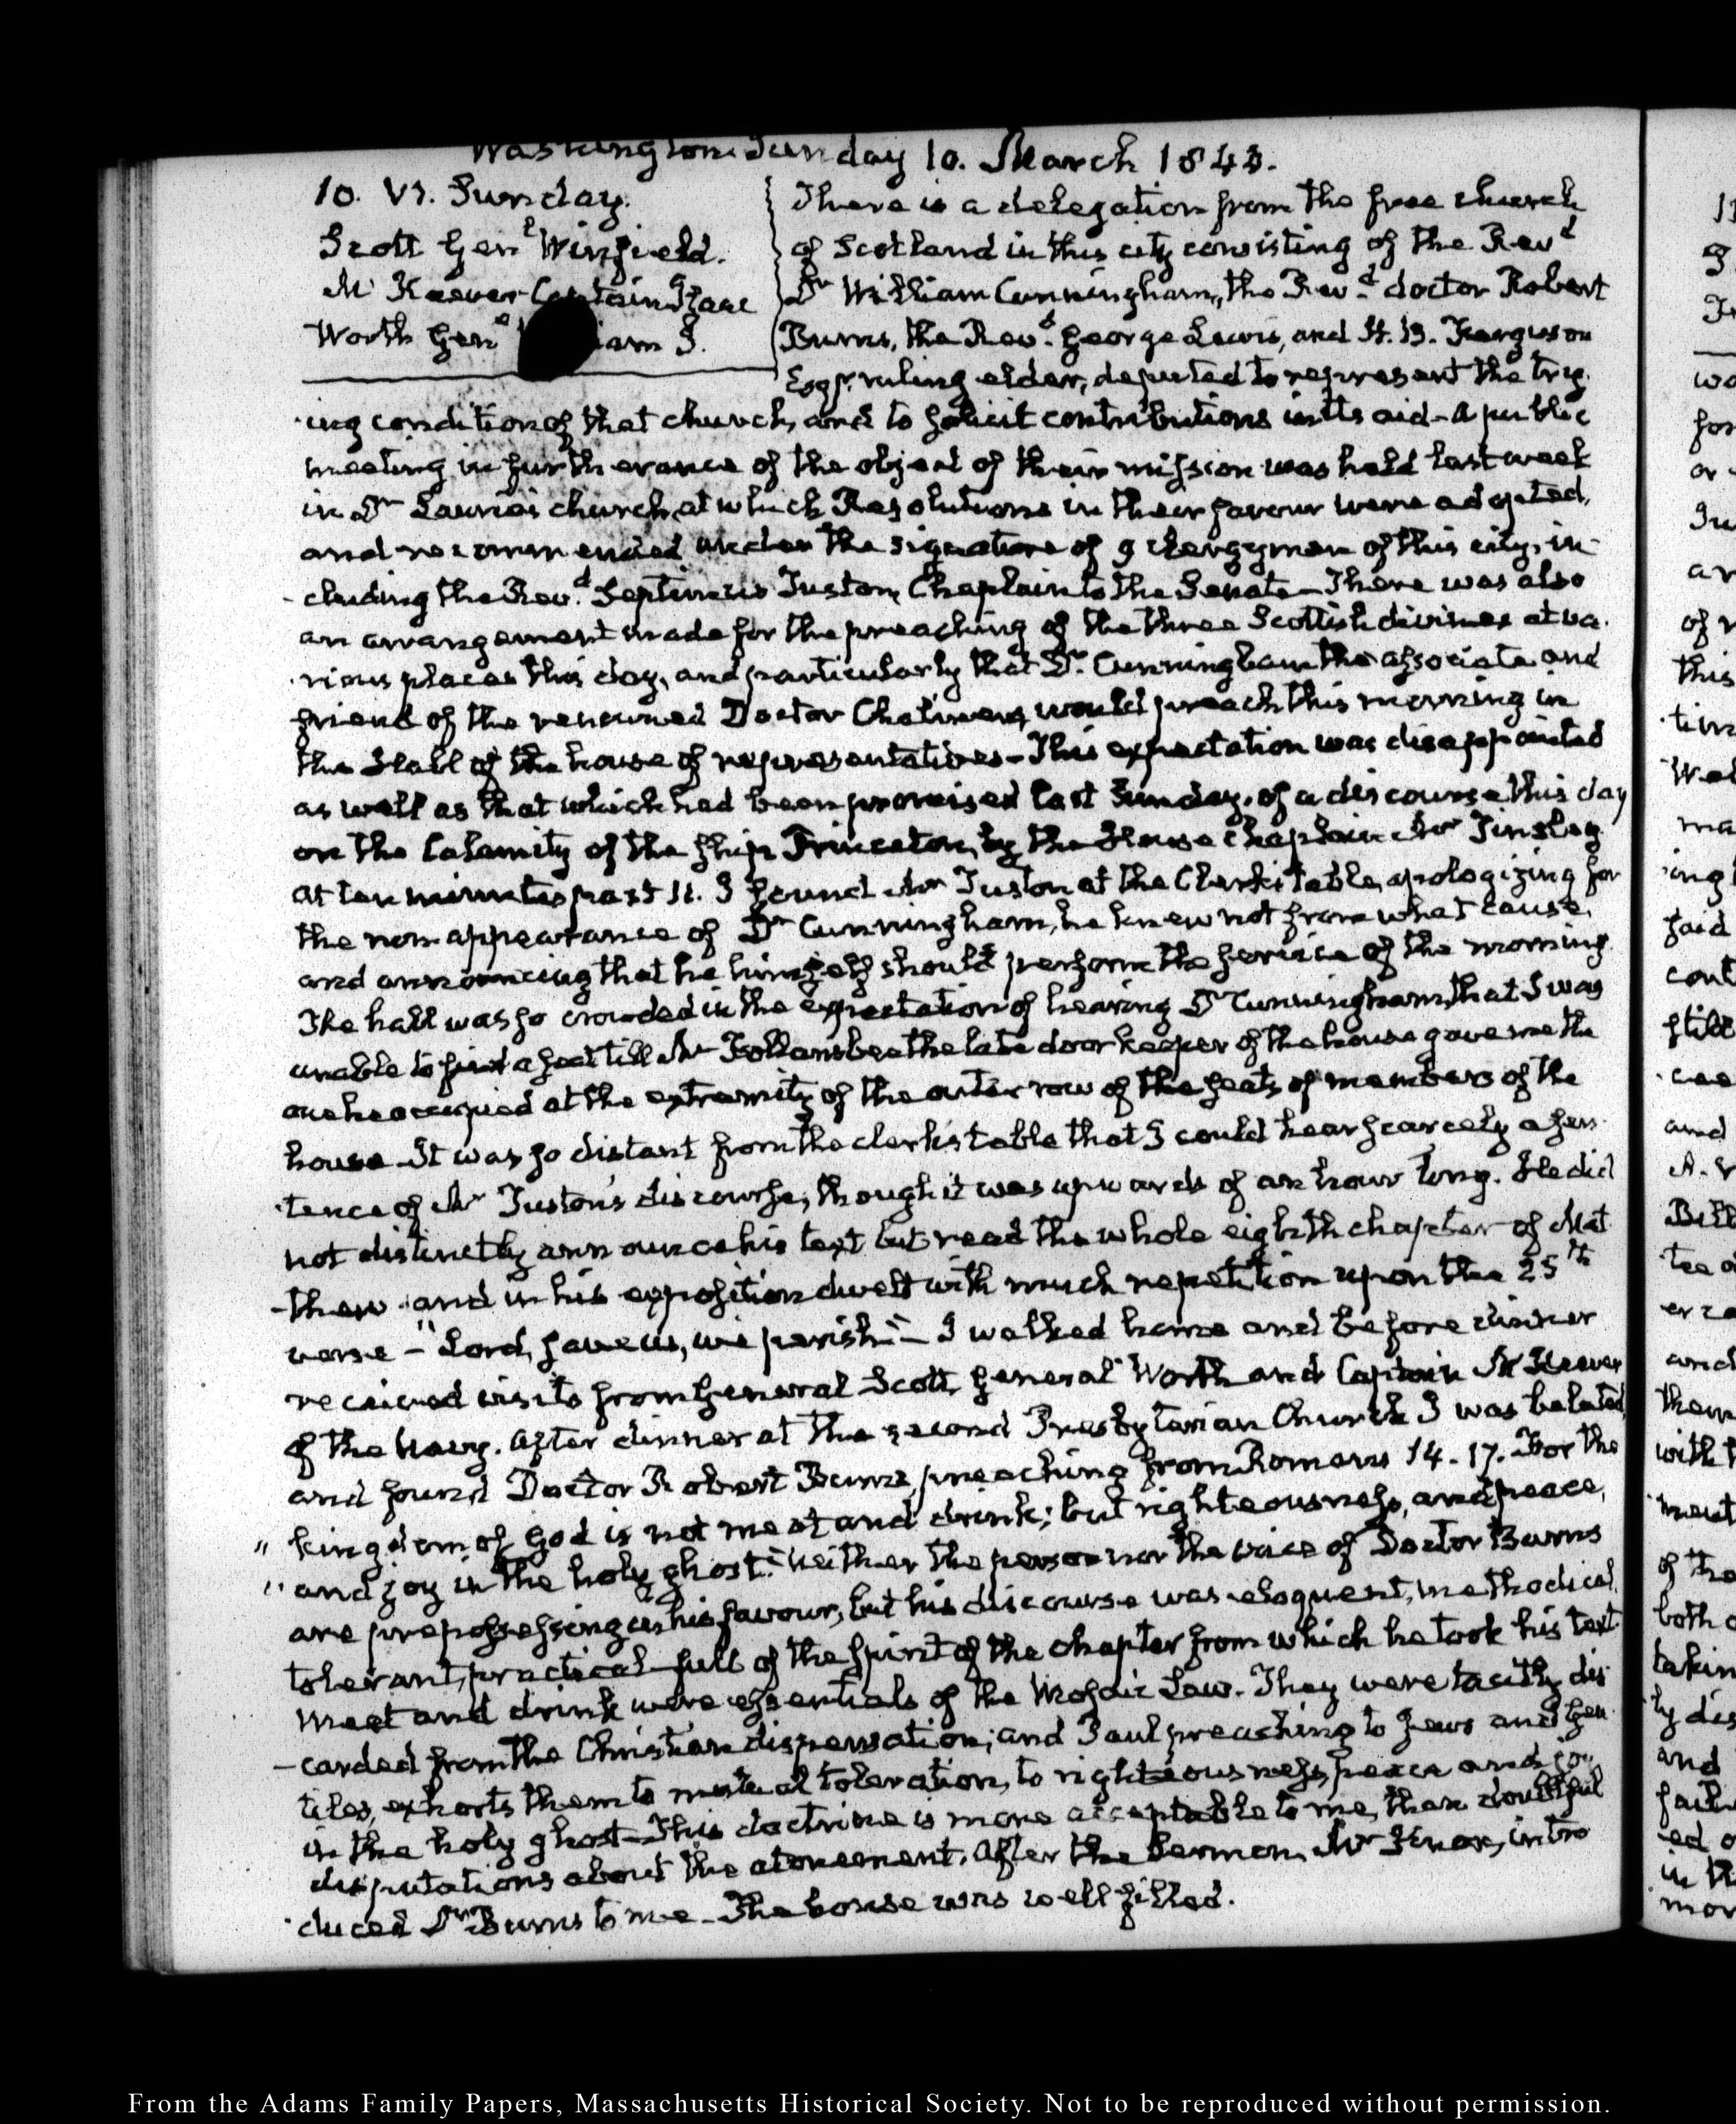 Washington Sunday 10. March 1844.
10. VI. Sunday.
Scott Genl Winfield.
Mc Keever Captain Isaac
Worth Genl iam J.
There is a delegation from the free church
of Scotland in this city consisting of the Revd
Dr William Cunningham, the Revd doctor Robert
Burns, the Revd George Lewis, and H. B. Ferguson
Esqr. ruling elder, deputed to represent the try-
ing condition of that church, and to solicit contributions in its aid - A public
meeting in furtherance of the object of their mission was held last week
in Dr Laurie's church, at which Resolutions in their favour were adopted,
and recommended under the signature of 9 clergymen of this city, in-
-cluding the Revd Septimus Tuston, Chaplain to the Senate - There was also
an arrangement made for the preaching of the three Scottish divines at va-
-rious places this day, and particularly that Dr Cunningham the associate and
friend of the renowned Doctor Chalmers, would preach this morning in
the Hall of the house of representatives - This expectation was disappointed
as well as that which had been promised last Sunday, of a discourse this day
on the Calamity of the ship Princeton, by the House Chaplain Mr Tinsley
at ten minutes past 11. I found Mr Tuston at the Clerk's table, apologizing for
the non appearance of Dr Cunningham, he knew not from what cause,
and announcing that he himself should perform the service of the morning
The hall was so crowded in the expectation of hearing Dr Cunningham, that I was
unable to find a seat till Mr Follansbee the late door keeper of the house gave me the
one he occupied at the extremity of the outer row of the seats of members of the
house - It was so distant from the clerk's table that I could hear scarcely a sen-
-tence of Mr Tuston's discourse, though it was upwards of an hour long. He did
not distinctly announce his text but read the whole eighth chapter of Mat-
-thew and in his exposition dwelt with much repetition upon the 25th
verse - "Lord, save us, we perish" - I walked home and before dinner
received visits from General Scott, General Worth and Captain Mc Keever
of the Navy. After dinner at the second Presbyterian Church I was belated,
and found Doctor Robert Burns, preaching from Romans 14. 17. For the
" kingdom of God is not meat and drink; but righteousness, and peace,
" and joy in the holy ghost." Neither the person nor the voice of Doctor Burns
are prepossessing in his favour, but his discourse was eloquent, methodical
tolerant, practical - full of the spirit of the chapter from which he took his text
Meat and drink were essentials of the Mosaic Law. They were tacitly dis-
-carded from the Christian dispensation; and Paul preaching to Jews and Gen-
tiles, exhorts them to mutual toleration, to righteousness, peace and joy
in the holy ghost - This doctrine is more acceptable to me, than doubtful
disputations about the atonement. After the Sermon, Mr Knox, intro-
-duced Dr Burns to me - The house was well filled.
From the Adams Family Papers, Massachusetts Historical Society. Not to be reproduced without permission.